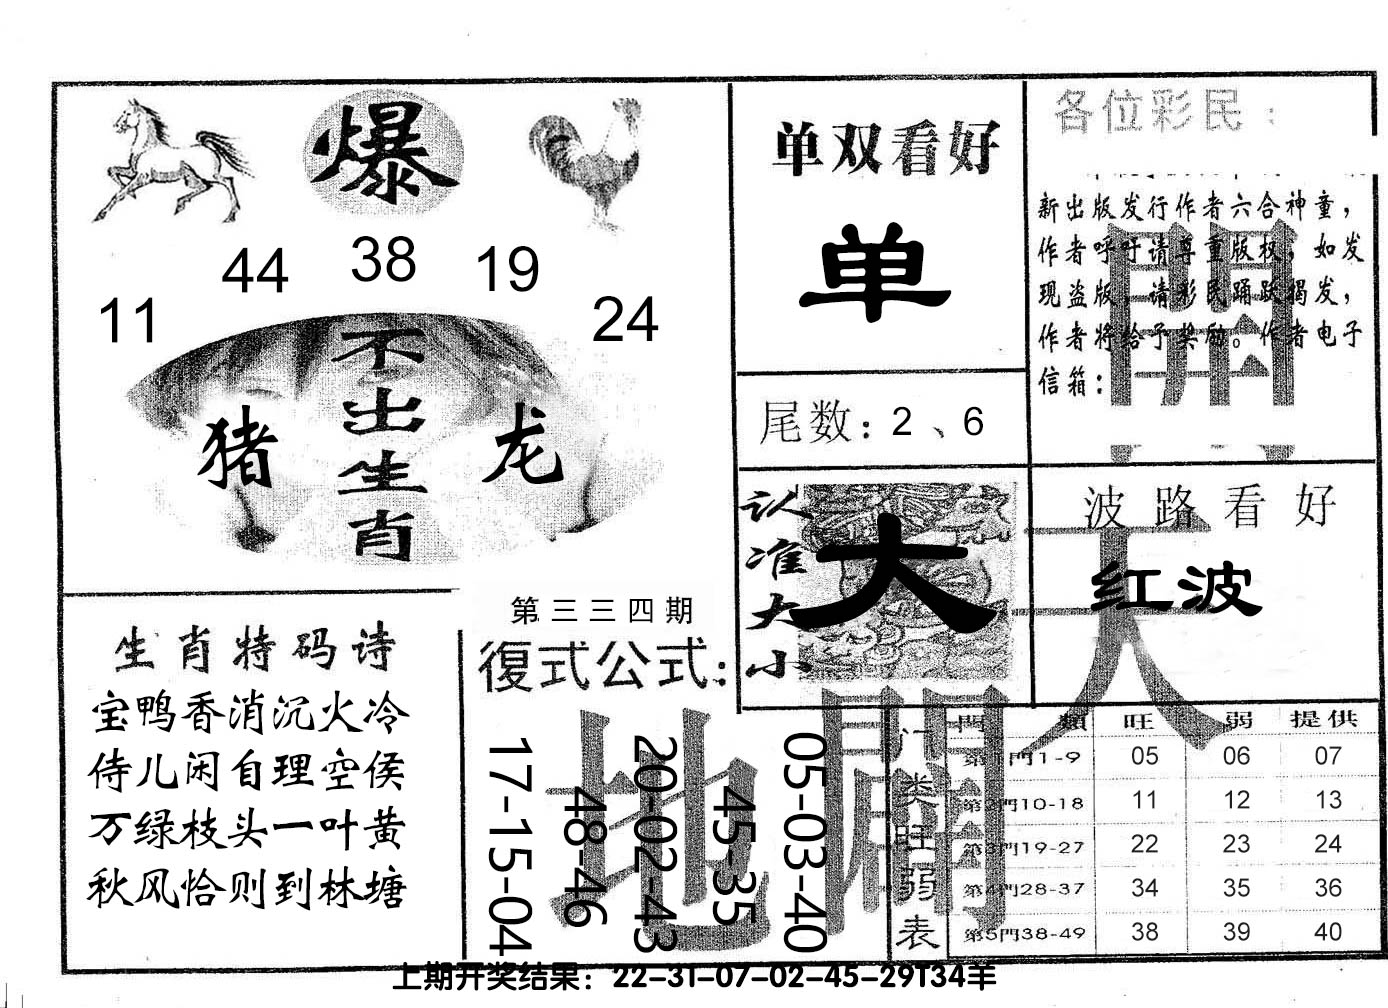 爆
11 44 38 19 24
不出生肖
猪 龙
单双看好
单
尾数：2、6
各位彩民：
新出版发行作者六合神童，
作者呼吁请尊重版权，如发
现盗版，请彩民踊跃揭发，
作者将给予奖励。作者电子
信箱：
開
认准大小
大
波路看好
红波
天
生肖特码诗
宝鸭香消沉火冷
侍儿闲自理空侯
万绿枝头一叶黄
秋风恰则到林塘
第三三四期
復式公式：
17-15-04
48-46
20-02-43
45-35
05-03-40
地
门类旺弱表
門類 旺 弱 提供
第1門1-9 05 06 07
第2門10-18 11 12 13
第3門19-27 22 23 24
第4門28-37 34 35 36
第5門38-49 38 39 40
上期开奖结果：22-31-07-02-45-29T34羊